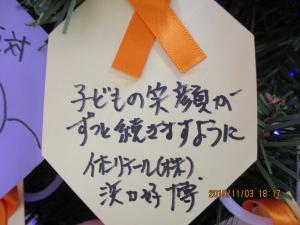 子どもの笑顔が
ずっと続きますように
イオンリテール(株)
博
2011/11/03 18:17